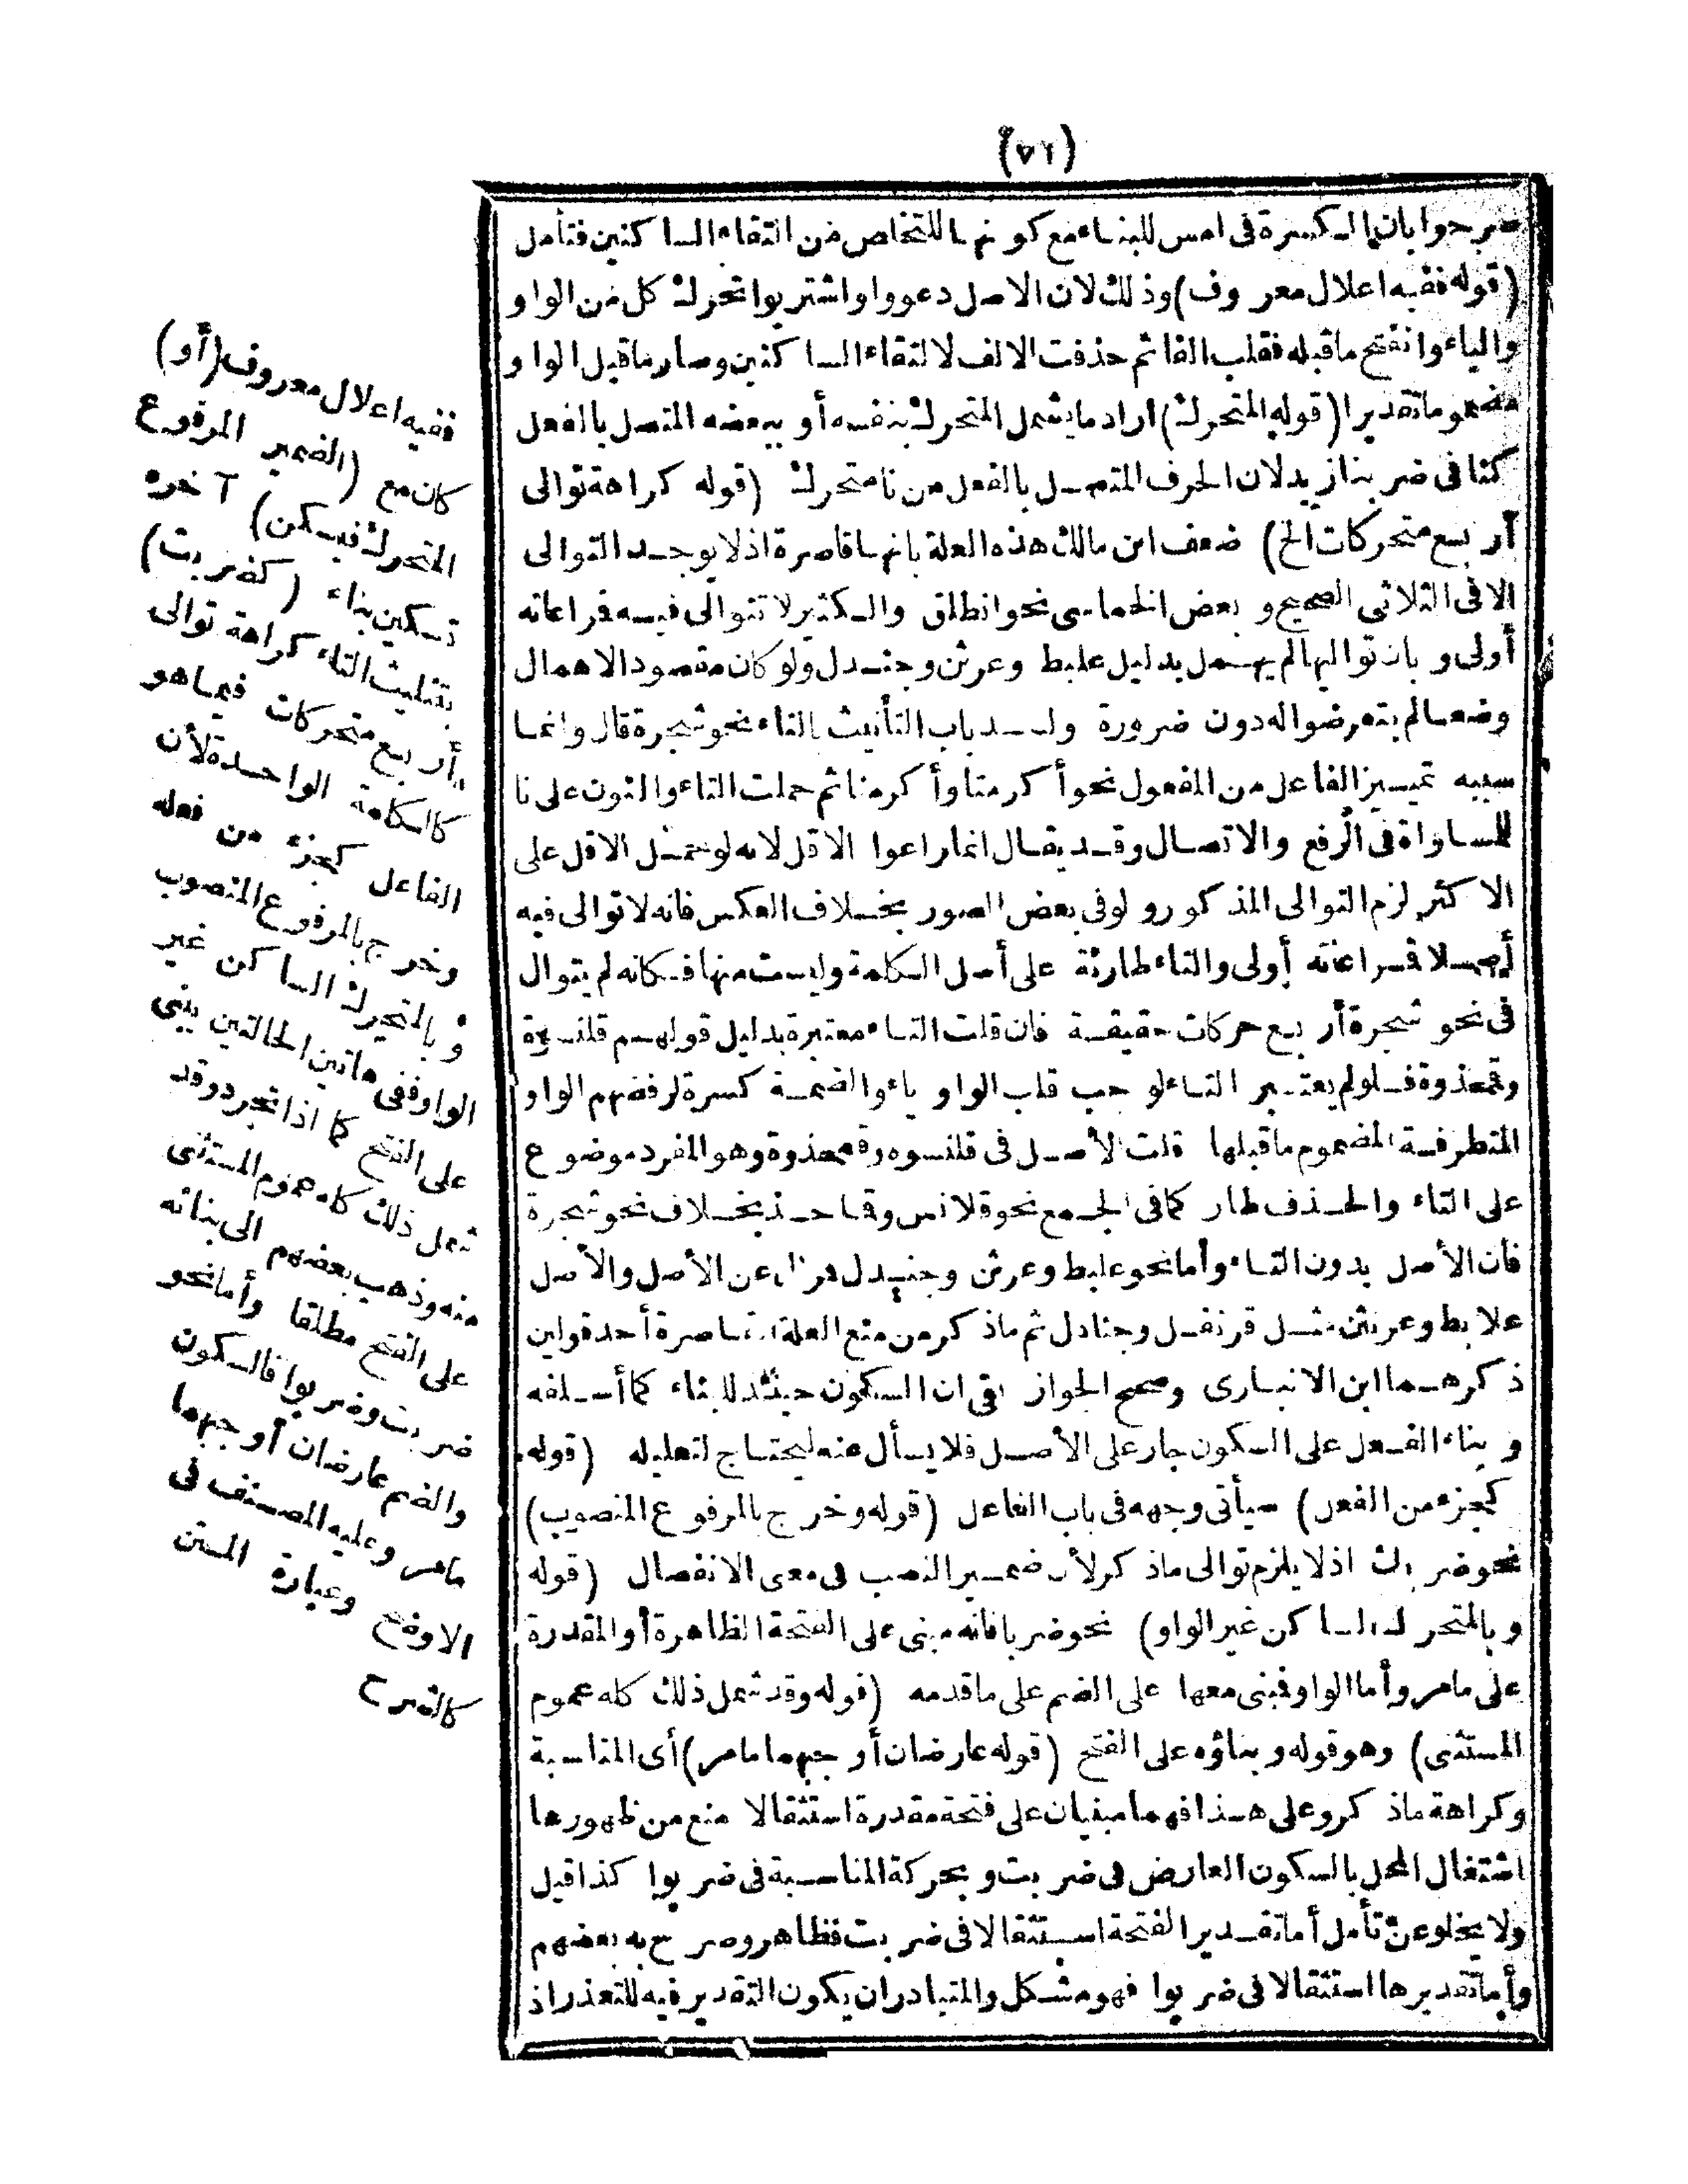 (٧٢)
صرحوا بان الكسرة فى امس للبناء مع كونها للتخلص من التقاء الساكنين فتأمل
(قوله ففيه اعلال معروف) وذلك لان الاصل دعووا واشتريوا تحرك كل من الواو
والياء وانفتح ما قبله فقلب الفا ثم حذفت الالف لالتقاء الساكنين وصار ما قبل الواو
مضموما تقديرا (قوله المتحرك) اراد ما يشمل المتحرك بنفسه أو ببعضه المتصل بالفعل
كنا فى ضربنا زيد لان الحرف المتصل بالفعل من نا متحرك (قوله كراهة توالى
أربع متحركات الخ) ضعف ابن مالك هذه العلة بانها قاصرة اذ لا يوجد التوالى
الا فى الثلاثى الصحيح وبعض الخماسى نحو انطلق والكثير لا تتوالى فيه فراعاته
أولى وبان تواليها لم يهمل بدليل علبط وعرثن وجندل ولو كان مقصود الاهمال
وضعا لم يتعرضوا له دون ضرورة ولسد باب التأنيث بالتاء نحو شجرة قال وانما
سببه تمييز الفاعل من المفعول نحو أكرمنا وأكرمنا ثم حملت التاء والنون على نا
للمساواة فى الرفع والاتصال وقد يقال انما راعوا الاقل لانه لو حمل الاقل على
الاكثر لزم التوالى المذكور ولو فى بعض الصور بخلاف العكس فانه لا توالى فيه
أصلا فراعاته أولى والتاء طارئة على أصل الكلمة وليست منها فكانه لم يتوال
فى نحو شجرة أربع حركات حقيقة فان قلت التاء معتبرة بدليل قولهم قلنسوة
وقمحذوة فلو لم يعتبر التاء لوجب قلب الواو ياء والضمة كسرة لرفضهم الواو
المتطرفة المضموم ما قبلها قلت الأصل فى قلنسوه وقمحذوة وهو المفرد موضوع
على التاء والحذف طار كما فى الجمع نحو قلانس وقماحذ بخلاف نحو شجرة
فان الأصل بدون التاء وأما نحو علبط وعرثن وجندل فزال عن الأصل والأصل
علابط وعرنثن مثل قرنفل وجنادل ثم ما ذكر من منع العلة القاصرة أحد قولين
ذكرهما ابن الانبارى وصحح الجواز بقى ان السكون حينئذ للبناء كما أسلفه
وبناء الفعل على السكون جار على الأصل فلا يسأل عنه ليحتاج لتعليله (قوله
كجزء من الفعل) سيأتى وجهه فى باب الفاعل (قوله وخرج بالمرفوع المنصوب)
نحو ضربك اذ لا يلزم توالى ما ذكر لأن ضمير النصب فى معنى الانفصال (قوله
وبالمتحرك الساكن غير الواو) نحو ضربا فانه مبنى على الفتحة الظاهرة أو المقدرة
على ما مر وأما الواو فيبنى معها على الضم على ما قدمه (قوله وقد شمل ذلك كله عموم
المستثنى) وهو قوله وبناؤه على الفتح (قوله عارضان أوجبهما ما مر) أى المناسبة
وكراهة ما ذكر وعلى هذا فهما مبنيان على فتحة مقدرة استثقالا منع من ظهورها
اشتغال المحل بالسكون العارض فى ضربت وبحركة المناسبة فى ضربوا كذا قيل
ولا يخلو عن تأمل أما تقدير الفتحة استثقالا فى ضربت فظاهر وصرح به بعضهم
وأما تقديرها استثقالا فى ضربوا فهو مشكل والمتبادر ان يكون التقدير فيه للتعذر اذ
ففيه اعلال معروف (أو)
كان مع (الضمير المرفوع
المتحرك فيسكن) آخره
تسكين بناء (كضربت)
بتثليث التاء كراهة توالى
أربع متحركات فيما هو
كالكلمة الواحدة لأن
الفاعل كجزء من فعله
وخرج بالمرفوع المنصوب
وبالمتحرك الساكن غير
الواو ففى هاتين الحالتين يبنى
على الفتح كما اذا تجرد وقد
شمل ذلك كله عموم المستثنى
منه وذهب بعضهم الى بنائه
على الفتح مطلقا وأما نحو
ضربت وضربوا فالسكون
والضم عارضان أوجبهما
ما مر وعليه المصنف فى
الاوضح وعبارة المتن
كالشرح